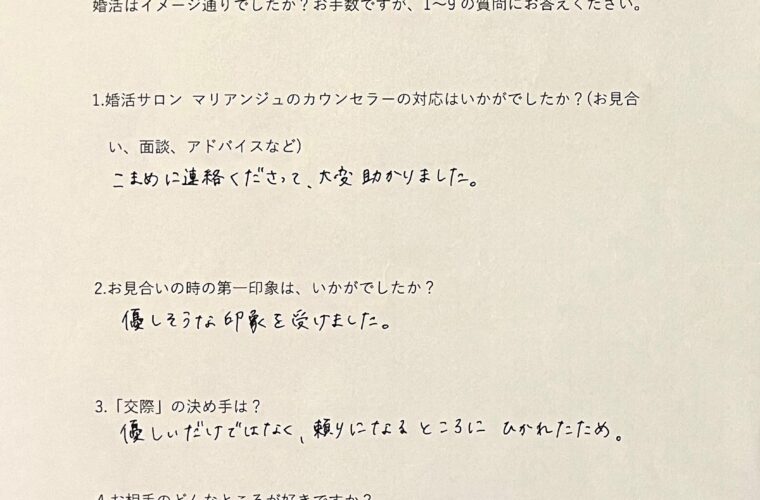 婚活はイメージ通りでしたか？お手数ですが、1〜9の質問にお答えください。
1.婚活サロン マリアンジュのカウンセラーの対応はいかがでしたか？(お見合
い、面談、アドバイスなど)
こまめに連絡くださって、大変助かりました。
2.お見合いの時の第一印象は、いかがでしたか？
優しそうな印象を受けました。
3.「交際」の決め手は？
優しいだけではなく、頼りになるところにひかれたため。
4.お相手のどんなところが好きですか？